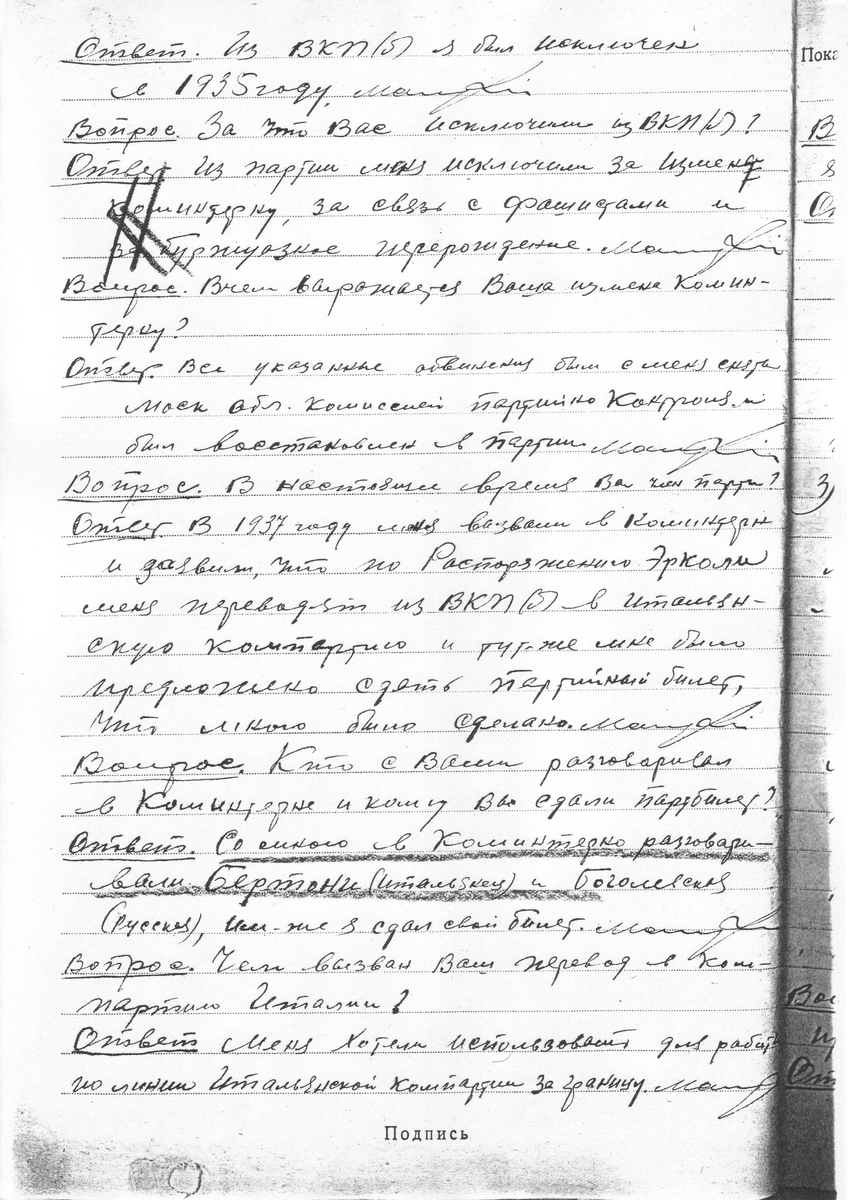 Ответ. Из ВКП(б) я был исключен
в 1935 году.
Вопрос. За что Вас исключили из ВКП(б)?
Ответ Из партии меня исключили за измену
Коминтерну, за связь с фашистами и
за буржуазное перерождение.
Вопрос. В чем выражается Ваша измена Комин-
терну?
Ответ. Все указанные обвинения были с меня сняты
Моск обл. Комиссией партийно Контроля и
был восстановлен в партии
Вопрос. В настоящее время Вы член партии?
Ответ В 1937 году меня вызвали в Коминтерн
и заявили, что по Распоряжению Эрколи
меня переводят из ВКП(б) в Итальян-
скую компартию и тут-же мне было
предложено сдать партийный билет,
что мною было сделано.
Вопрос. Кто с Вами разговаривал
в Коминтерне и кому Вы сдали партбилет?
Ответ. Со мною в Коминтерне разговари-
вали Бертони (итальянец) и
(Русская), им-же я сдал свой билет.
Вопрос. Чем вызван Ваш перевод в Ком-
партию Италии?
Ответ Меня хотели использовать для работы
по линии Итальянской компартии за границу.
Подпись
Пока
В
я
От
Воп
От